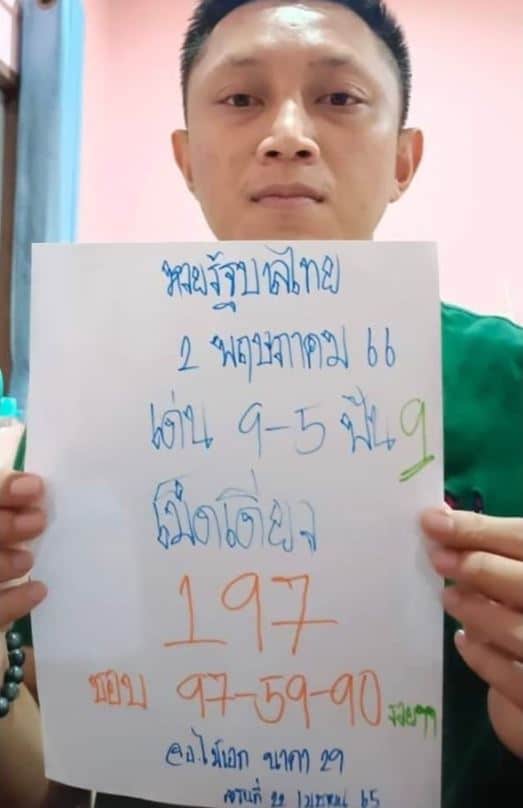 หวยรัฐบาลไทย
2 พฤษภาคม 66
เด่น 9-5 ฟัน 9
เม็ดเดียว
197
ชอบ 97-59-90 รวยๆๆ
@อ.ไม้เอก นาคา 29